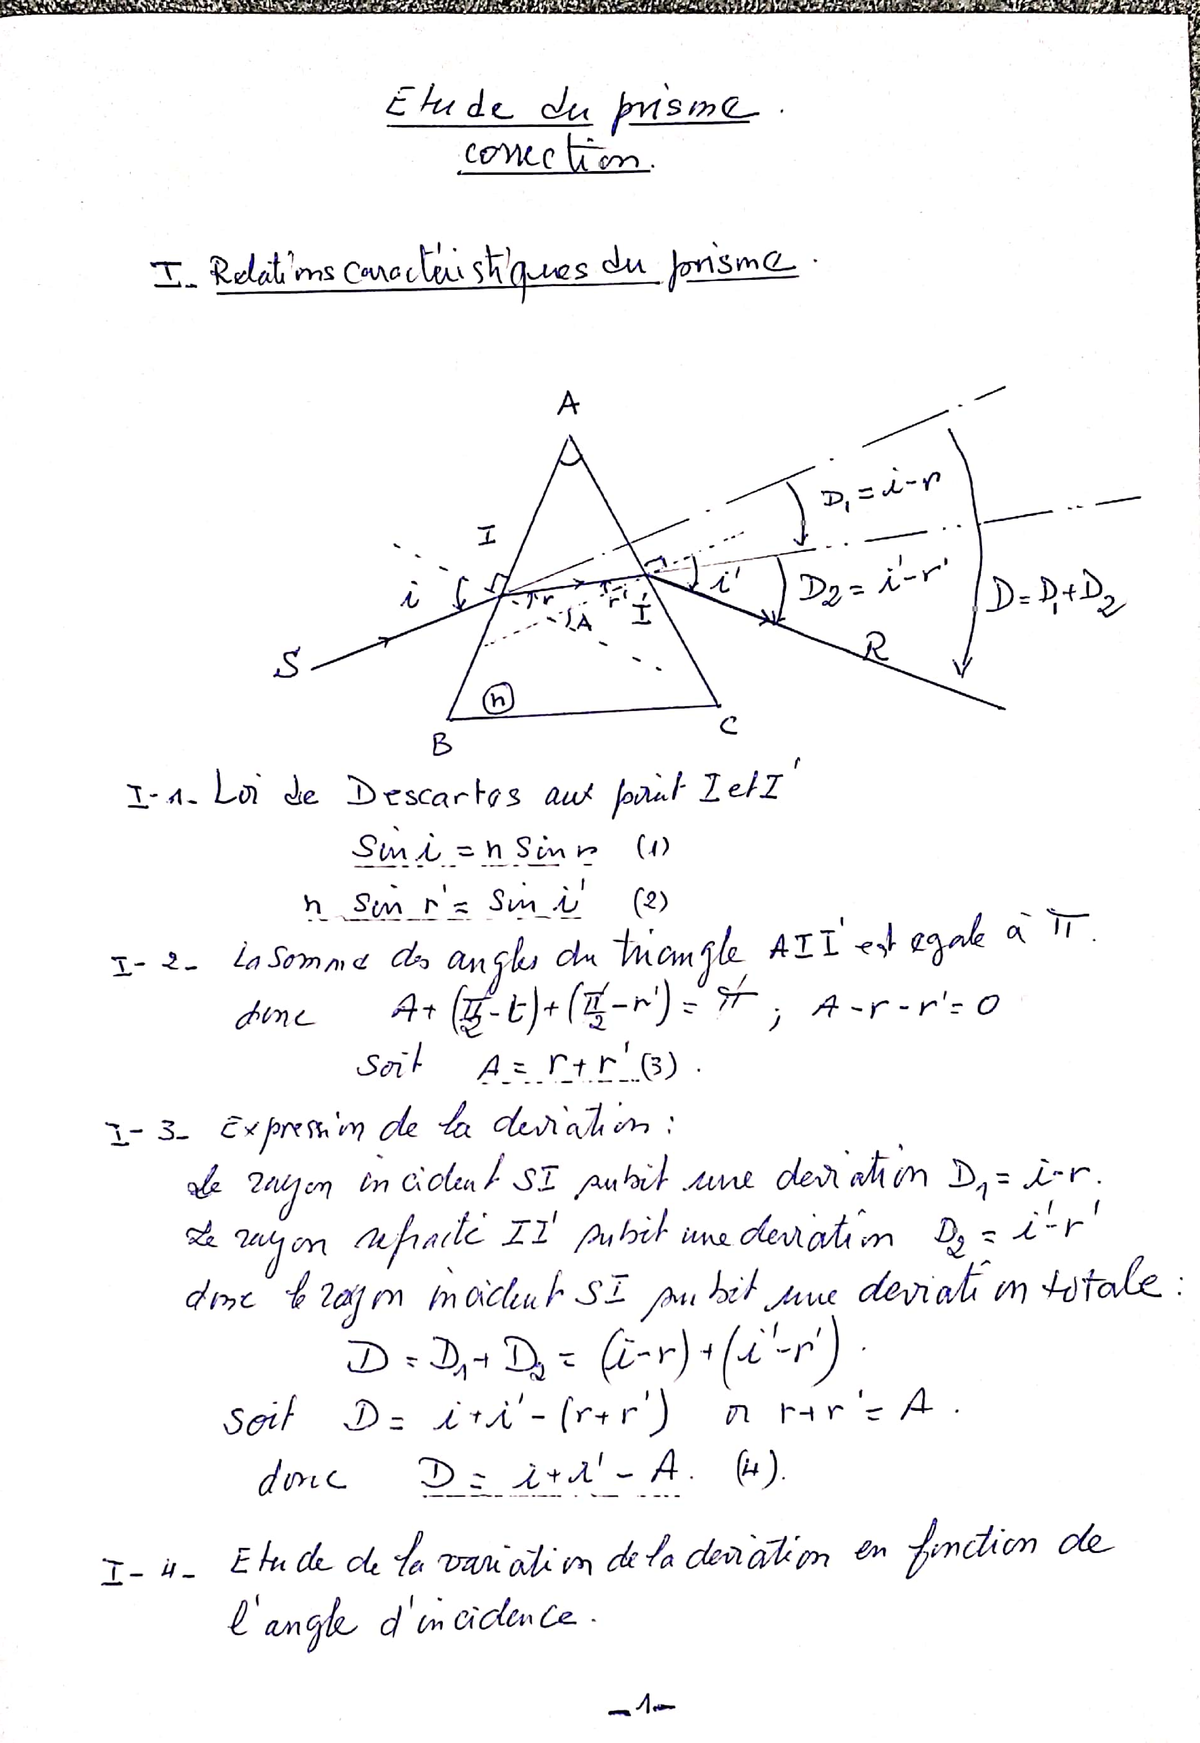 Etude du prisme.
correction.
I- Relations caractéristiques du prisme.
A
I
D₁ = i-r
i
r
r'
I'
i'
D2 = i'-r'
D = D₁+D₂
A
S
R
n
B
C
I-1- Loi de Descartes aux point I et I'
Sin i = n Sin r (1)
n Sin r' = Sin i' (2)
I-2- La Somme des angles du triangle AII' est egale à π.
donc A+(π/2-r)+(π/2-r') = π ; A-r-r'=0
Soit A = r+r' (3).
I-3- Expression de la deviation :
Le rayon incident SI subit une deviation D₁ = i-r.
Le rayon refracté II' subit une deviation D₂ = i'-r'
donc le rayon incident SI subit une deviation totale :
D = D₁+ D₂ = (i-r)+(i'-r').
Soit D = i+i'-(r+r') or r+r'= A.
donc D = i+i'- A. (4).
I-4- Etude de la variation de la deviation en fonction de
l'angle d'incidence.
-1-